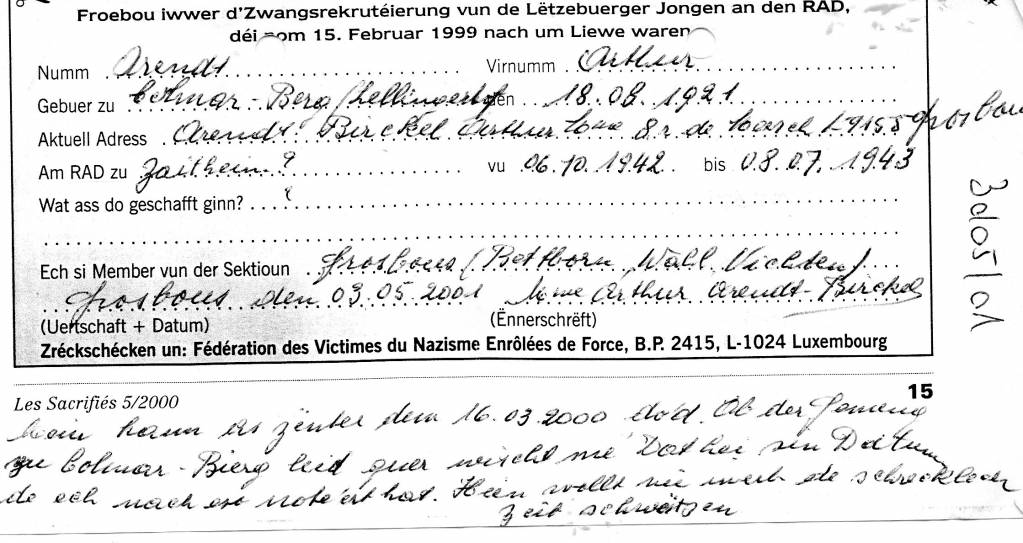 Froebou iwwer d'Zwangsrekrutéierung vun de Lëtzebuerger Jongen an den RAD,
déi vom 15. Februar 1999 nach um Liewe waren
Numm Arendt Virnumm Arthur
Gebuer zu Colmar-Berg den 18.08.1921
Aktuell Adress Arendt-Birckel Arthur 8 r. de L-9155 Grosbous
Am RAD zu Zeithein? vu 06.10.1942 bis 08.07.1943
Wat ass do geschafft ginn? ?
Ech si Member vun der Sektioun Grosbous (Bettborn, Wahl, Vichten)
Grosbous den 03.05.2001 Mme Arthur Arendt-Birckel
(Uertschaft + Datum) (Ënnerschrëft)
Zréckschécken un: Fédération des Victimes du Nazisme Enrôlées de Force, B.P. 2415, L-1024 Luxembourg
15
Les Sacrifiés 5/2000
Mein as zënter dem 16.03.2000 dod. Ob der Gemeng
zu Colmar-Bierg leid Dat hei sin Datum
de ech nach hat. Hien wollt nie iwert de schrecklech
Zeit schwätzen
3/05/01